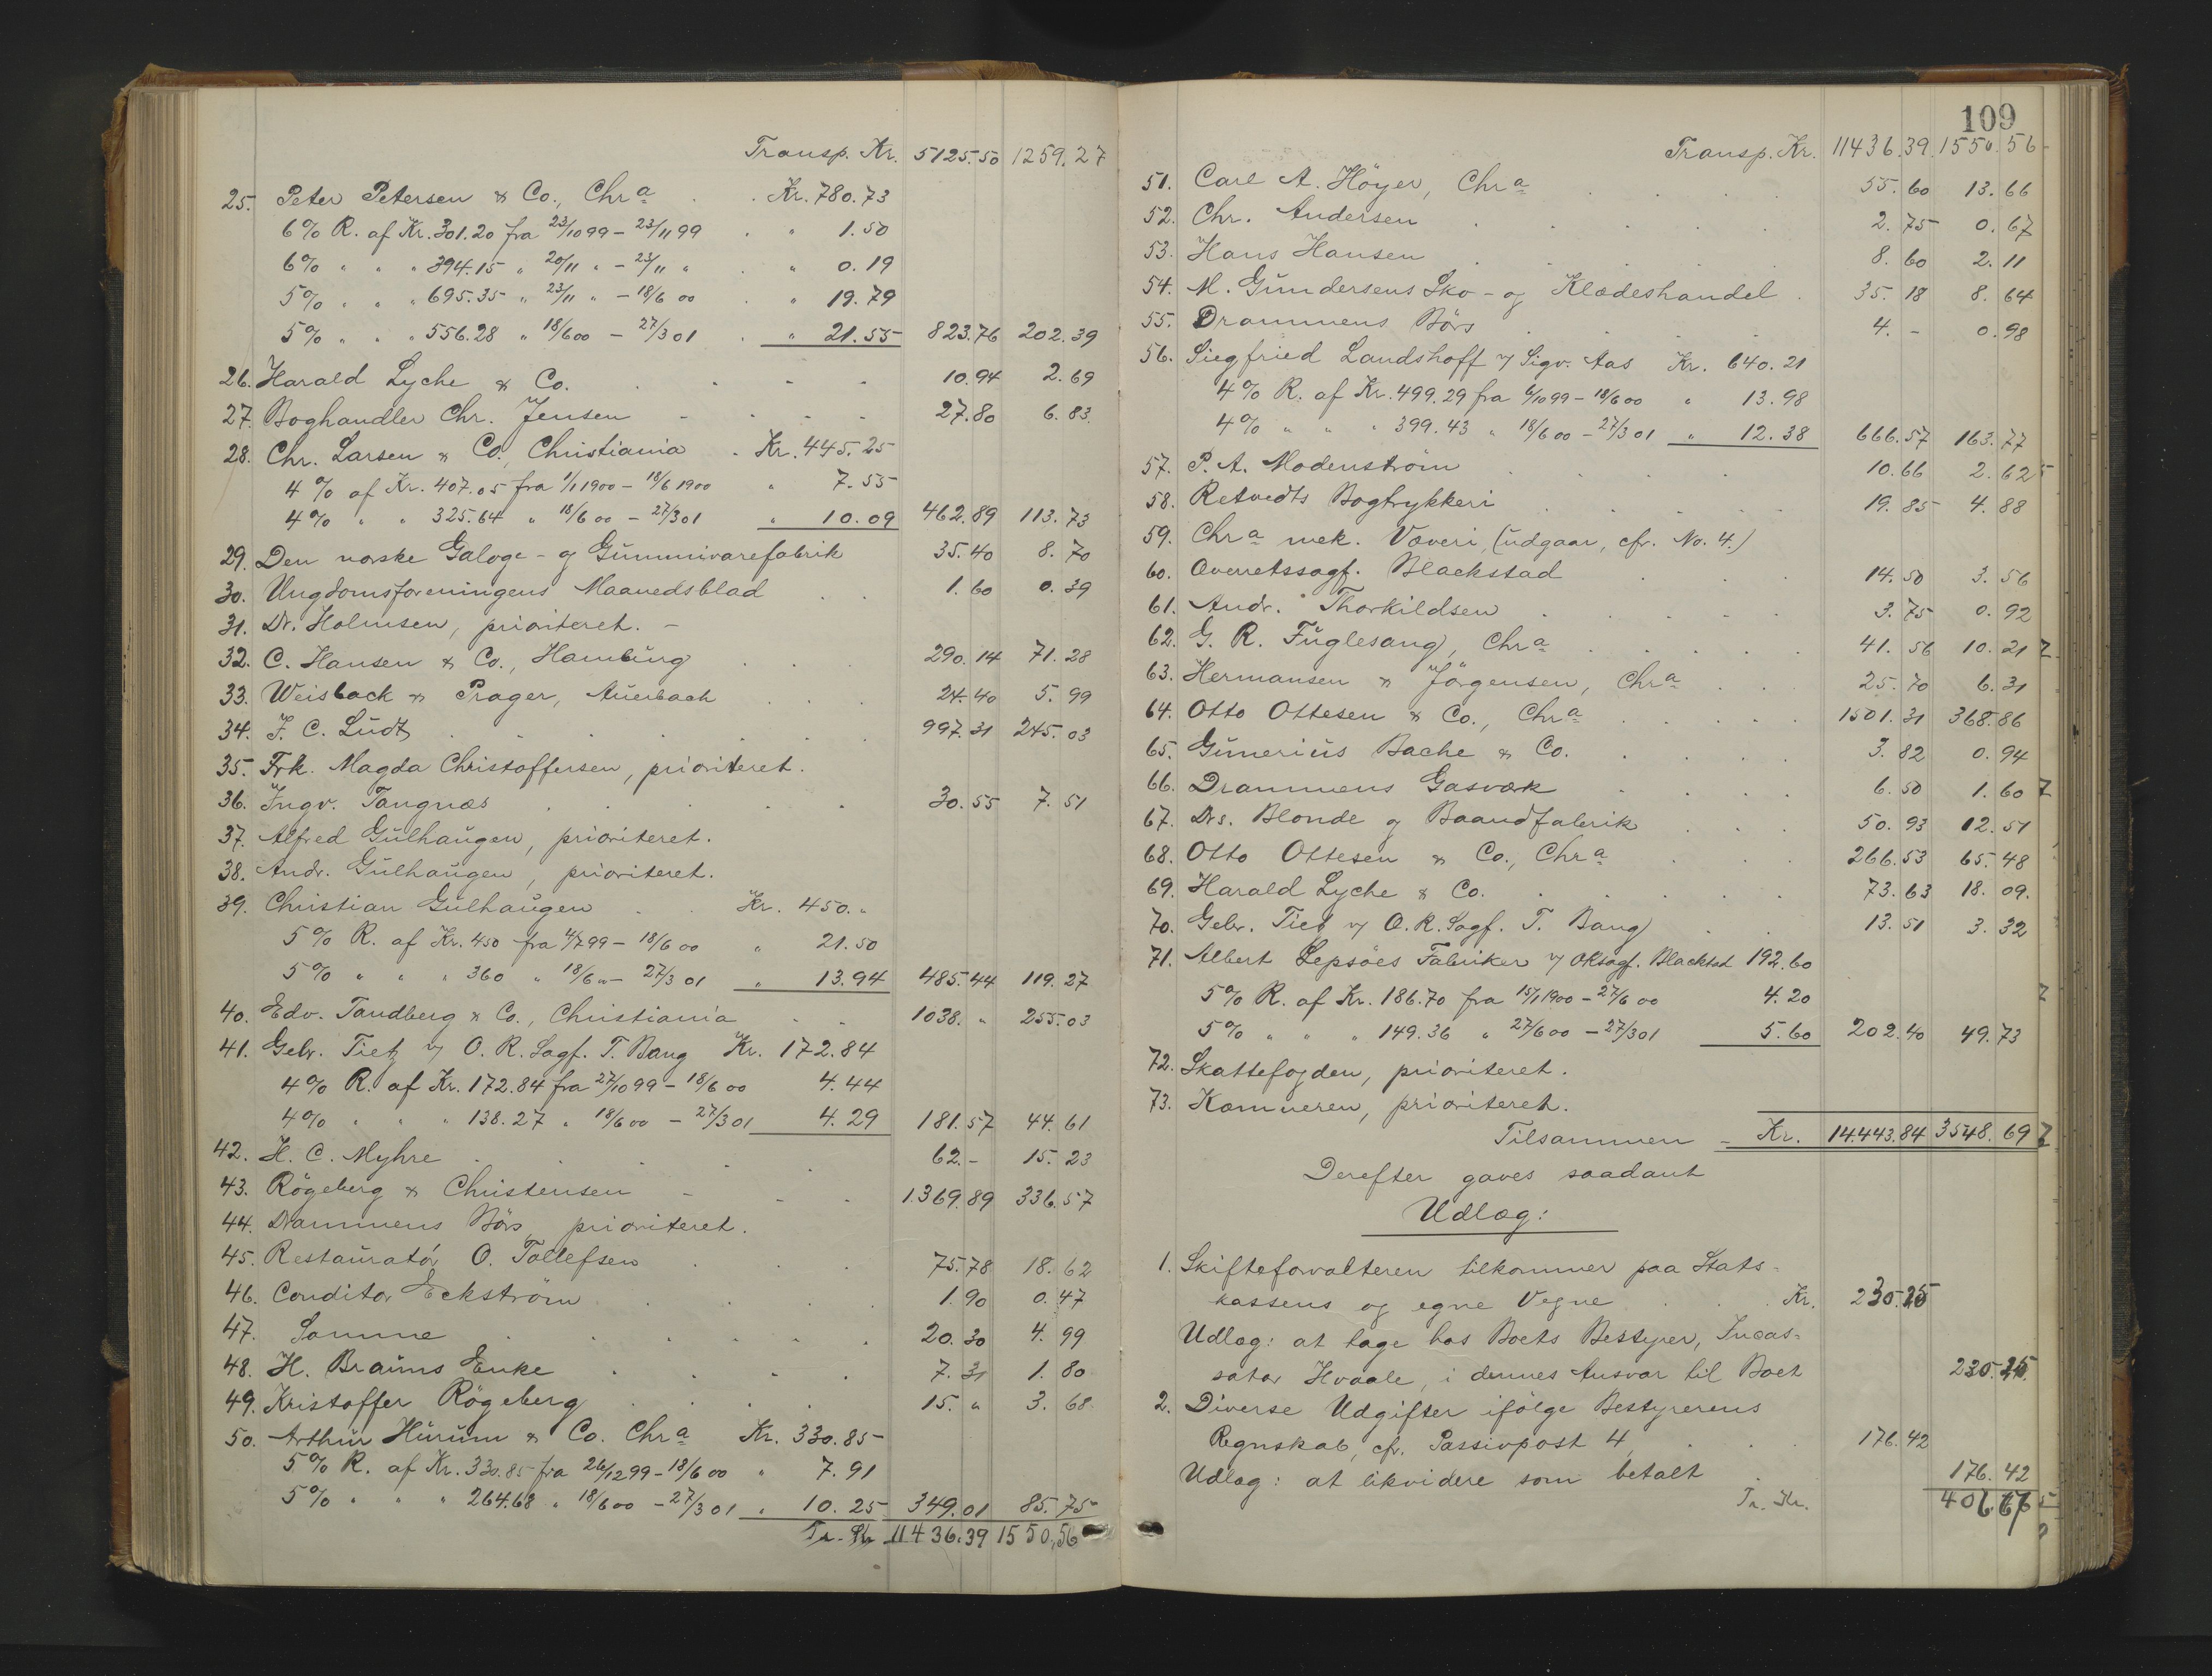 Transp. Kr. 5125.50 1259.27
25. Peter Petersen & Co., Chra . . Kr. 780.73
6% R. af Kr. 301.20 fra 23/10 99 – 23/11 99 . " 1.50
6% " " " 394.15 " 20/11 " – 23/11 " . " 0.19
5% " " " 695.35 " 23/11 " – 18/6 00 . " 19.79
5% " " " 556.28 " 18/6 00 – 27/3 01 . " 21.55 823.76 202.39
26. Harald Lyche & Co. . . . . 10.94 2.69
27. Boghandler Chr. Jensen . . . . 27.80 6.83.
28. Chr. Larsen & Co., Christiania . Kr. 445.25
4% af Kr. 407.05 fra 1/1 1900 – 18/6 1900 " 7.55
4% " " 325.64 " 18/6 00 – 27/3 01 " 10.09 462.89 113.73
29. Den norske Galoge- og Gummivarefabrik 35.40 8.70
30. Ungdomsforeningens Maanedsblad . . 1.60 0.39
31. Dr. Holmsen, prioriteret. –
32. C. Hansen & Co., Hamburg . . . 290.14 71.28
33. Weisback & Prager, Auerbach . . . 24.40 5.99
34. J. C. Ludt . . . . . . 997.31 245.03
35. Frk. Magda Christoffersen, prioriteret.
36. Ingv. Tangnæs . . . . . 30.55 7.51
37. Alfred Gulhaugen, prioriteret.
38. Andr. Gulhaugen, prioriteret.
39. Christian Gulhaugen . . Kr. 450."
5% R. af Kr. 450 fra 4/7 99 – 18/6 00 " 21.50
5% " " " 360 " 18/6 " – 27/3 01 " 13.94 485.44 119.27
40. Edv. Tandberg & Co., Christiania . . 1038. " 255.03
41. Gebr. Tietz v/ O. R. Sagf. T. Bang Kr. 172.84
4% R. af Kr. 172.84 fra 27/10 99 – 18/6 00 4.44
4% " " " 138.27 " 18/6 00 – 27/3 01 4.29 181.57 44.61
42. H. C. Myhre . . . . . 62.– 15.23
43. Rögeberg & Christensen . . . 1369.89 336.57
44. Drammens Börs, prioriteret.
45. Restauratör O. Tollefsen . . . 75.78 18.62
46. Conditor Eckström . . . . 1.90 0.47
47. Samme . . . . . . 20.30 4.99
48. H. Brauns Enke . . . . 7.31 1.80
49. Kristoffer Rögeberg . . . . 15. " 3.68.
50. Arthur Hurum & Co. Chra Kr. 330.85
5% R. af Kr. 330.85 fra 26/12 99 – 18/6 00 " 7.91
5% " " " 264.68 " 18/6 00 – 27/3 01 " 10.25 349.01 85.75
Tr. Kr. 11436.39 1550.56
109
Transp. Kr. 11436.39 1550.56
51. Carl A. Höyer, Chra . . . . 55.60 13.66
52. Chr. Andersen . . . . . 2.75 0.67
53. Hans Hansen . . . . . 8.60 2.11
54. M. Gundersens Sko- og Klædeshandel . 35.18 8.64
55. Drammens Börs . . . . . 4.– 0.98
56. Siegfried Landshoff v/ Sigv. Aas Kr. 640.21
4% R. af Kr. 499.29 fra 6/10 99 – 18/6 00 " 13.98
4% " " " 399.43 " 18/6 00 – 27/3 01 " 12.38 666.57 163.77
57. P. A. Modenström . . . . 10.66 2.62
58. Retvedts Bogtrykkeri . . . . 19.85 4.88
59. Chra mek. Væveri, (udgaar, cfr. No. 4.)
60. Overretssagf. Blackstad . . . 14.50 3.56
61. Andr. Thorkildsen . . . . 3.75 0.92
62. G. R. Fuglesang, Chra . . . . 41.56 10.21
63. Hermansen & Jörgensen, Chra . . . 25.70 6.31
64. Otto Ottesen & Co., Chra . . . . 1501.31 368.86
65. Gunerius Bache & Co. . . . . 3.82 0.94
66. Drammens Gasværk . . . . 6.50 1.60
67. Drs. Blonde og Baandfabrik . . . 50.93 12.51
68. Otto Ottesen & Co., Chra . . . 266.53 65.48
69. Harald Lyche & Co. . . . . 73.63 18.09.
70. Gebr. Tietz v/ O. R. Sagf. T. Bang . . 13.51 3.32
71. Albert Lepsöes Fabriker v/ ORsagf. Blackstad 192.60
5% R. af Kr. 186.70 fra 15/1 1900 – 27/6 00 4.20
5% " " " 149.36 " 27/6 00 – 27/3 01 5.60 202.40 49.73
72. Skattefogden, prioriteret.
73. Kæmneren, prioriteret.
Tilsammen – Kr. 14.443.84 3548.69
Derefter gaves saadant
Udlæg:
1. Skifteforvalteren tilkommer paa Stats-
kassens og egne Vegne . . . Kr. 230.25
Udlæg: at tage hos Boets Bestyrer, Incas-
sator Hvaale, i dennes Ansvar til Boet 230.25.
2. Diverse Udgifter ifölge Bestyrerens
Regnskab, cfr. Passivpost 4 . . . 176.42
Udlæg: at likvidere som betalt . 176.42
Tr. Kr. 406.67